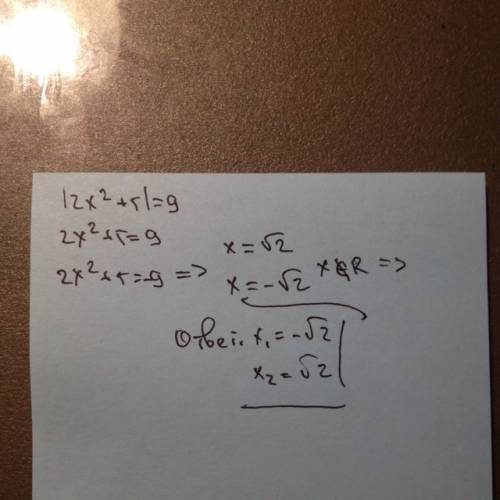 |2x²+5|=9
2x²+5=9
2x²+5=-9 =>
x=√2
x=-√2 x∈R =>
Ответ. x₁=-√2
x₂=√2